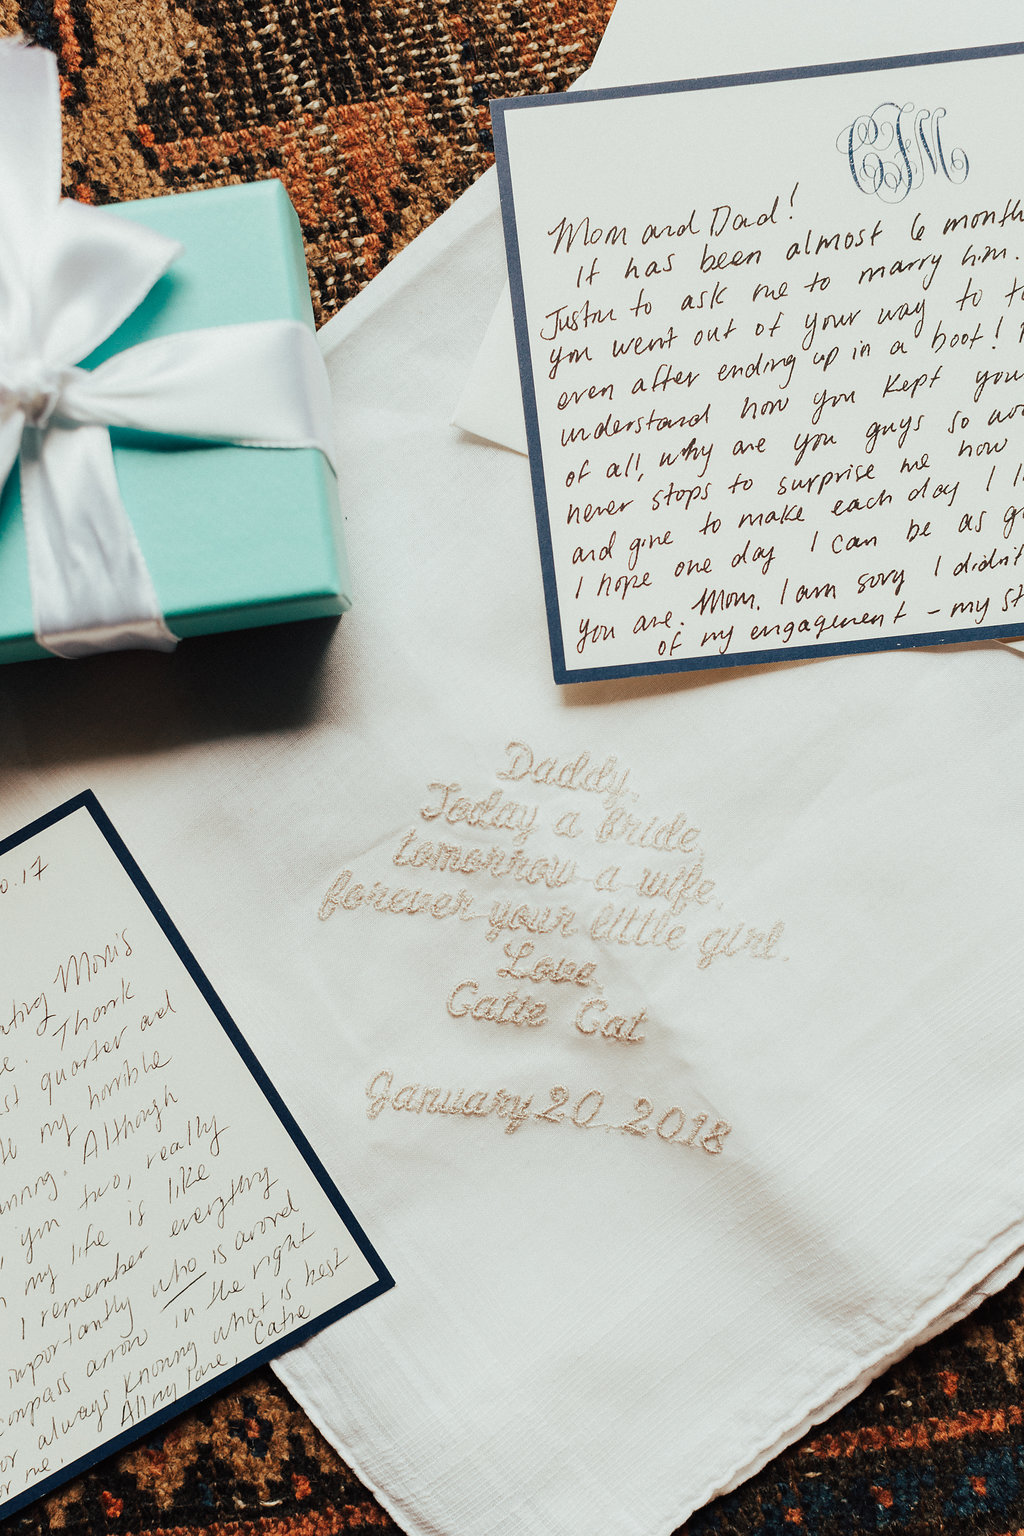 CJM
Mom and Dad!
It has been almost 6 month
Justin to ask me to marry him.
you went out of your way to
even after ending up in a boot!
understand how you kept you
of all, why are you guys so
never stops to surprise me how
and give to make each day I
I hope one day I can be as
you are. Mom. I am sorry I didn't
of my engagement - my
Daddy,
Today a bride,
tomorrow a wife,
forever your little girl.
Love,
Catie Cat
January 20, 2018
.17
Mom's
Thank
quarter and
my horrible
Although
you two, really
my life is like
I remember everything
importantly who is around
compass arrow in the right
or always knowing what is best
or me. All my love, Catie